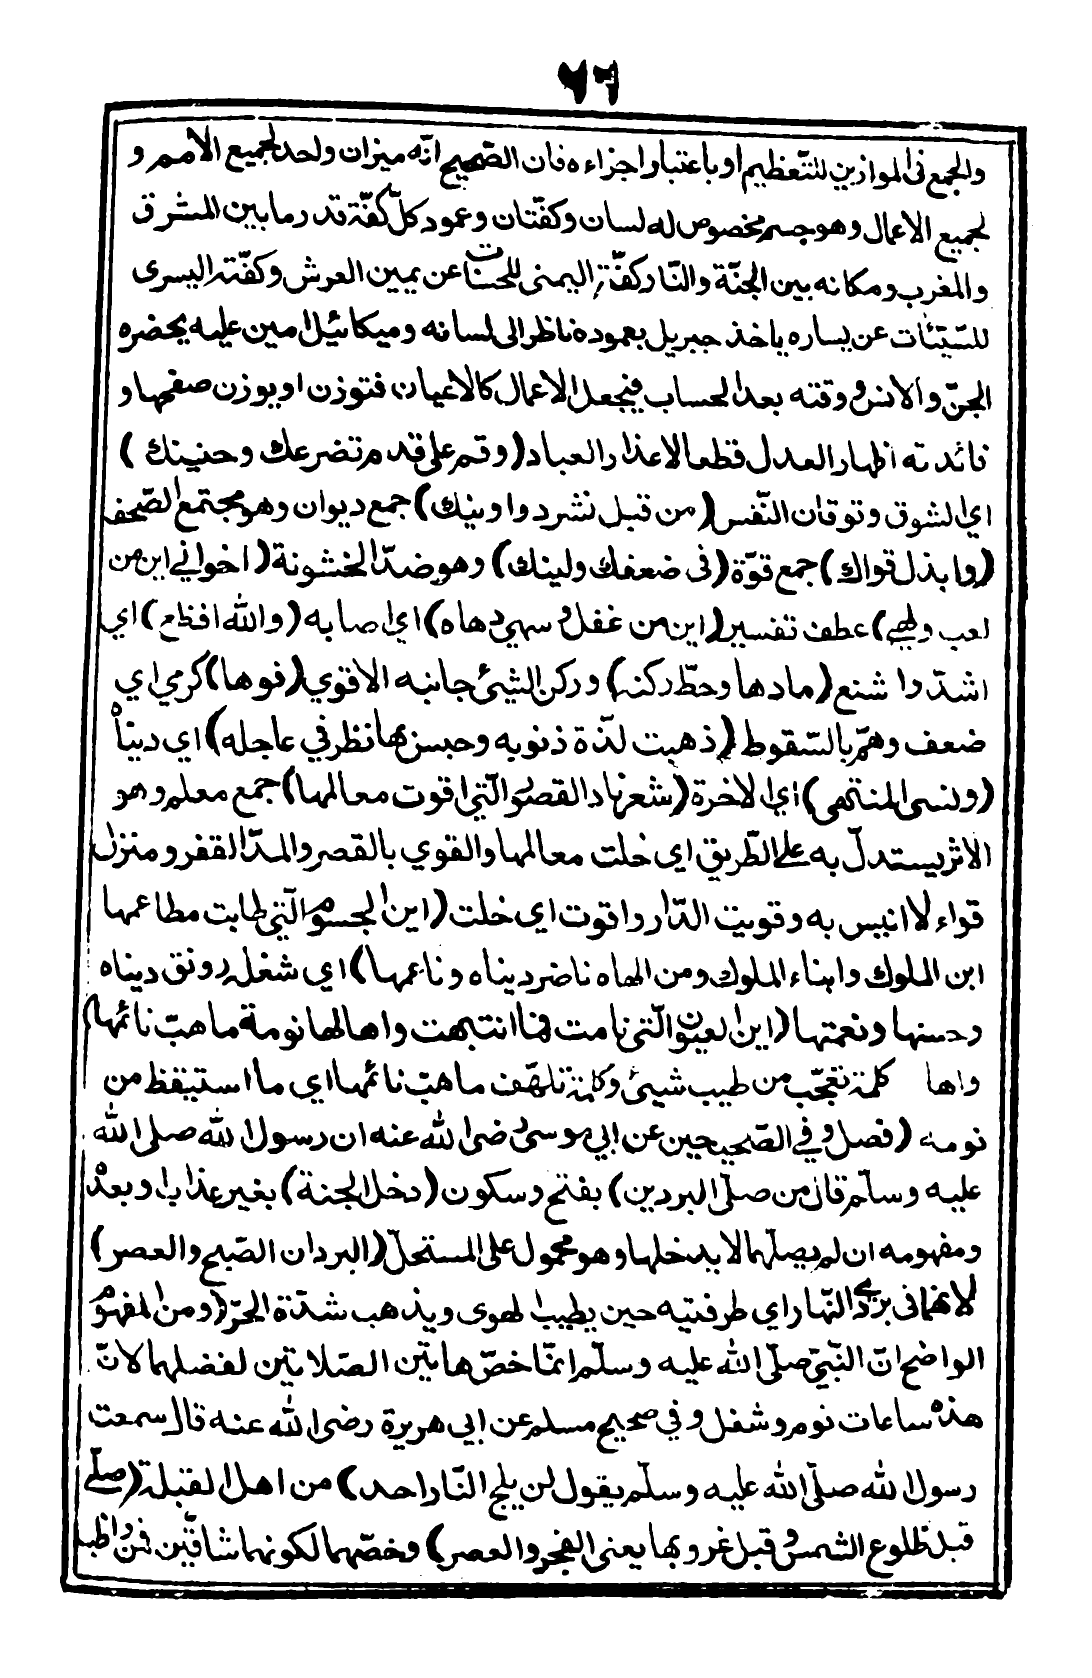 ٦٦
والجمع فى الموازين للتّعظيم او باعتبار اجزاءه فان الصّحيح انّه ميزان واحد لجميع الامم و
لجميع الاعمال وهو جسم مخصوص له لسان وكفّتان وعمود كلّ كفّة قدر ما بين المشرق
والمغرب ومكانه بين الجنّة والنّار كفّة اليمنى للحسنات عن يمين العرش وكفّته اليسرى
للسّيّئات عن يساره ياخذ جبريل بعموده ناظر الى لسانه وميكائيل امين عليه يحضره
الجنّ والانس وقته بعد الحساب فيجعل الاعمال كالاعيان فتوزن او يوزن صفحها و
فائدته اظهار العدل قطعا لاعذار العباد (وقم على قدم تضرعك وحنينك)
اى الشوق وتوقان النّفس (من قبل نشر دواوينك) جمع ديوان وهو مجتمع الصّحف
(وابذل قواك) جمع قوّة (فى ضعفك ولينك) وهو ضدّ الخشونة (اخوانى اين من
لعب ولهى) عطف تفسير (اين من غفل وسهى دهاه) اى اصابه (والله افظع) اى
اشدّ واشنع (ما دها وحطّ ركنه) وركن الشئ جانبه الاقوي (فوها) كرمي اي
ضعف وهمّ بالسّقوط (ذهبت لذّة ذنوبه وحبس بها نظر في عاجله) اي ديناه
(ونسى المنتهى) اي الاخرة (شعر نهاد القصور الّتي اقوت معالمها) جمع معلم وهو
الاثر يستدلّ به على الطّريق اي خلت معالمها والقوي بالقصر والمدّ القفر ومنزل
قواء لا انيس به وقويت الدّار واقوت اي خلت (اين الجسوم الّتي طابت مطاعمها
اين الملوك وابناء الملوك ومن الهاه ناضر ديناه وناعمها) اي شغله رونق ديناه
وحسنها ونعمتها (اين العيون الّتي نامت فما انتبهت واها لها نومة ما هبّ نائمها)
واها كلمة تعجّب من طيب شيئ وكلمة تلهّف ما هبّ نائمها اي ما استيقظ من
نومه (فصل وفي الصّحيحين عن ابي موسى رضى الله عنه ان رسول الله صلى الله
عليه وسلّم قال من صلّى البردين) بفتح وسكون (دخل الجنة) بغير عذاب او بعده
ومفهومه ان لم يصلّهما لا يدخلها وهو محمول على المستحلّ (البردان الصّبح والعصر)
لانهما فى بردي النّهار اي طرفتيه حين يطيب الهوى ويذهب شدّة الحرّ (ومن المفهوم
الواضح انّ النّبيّ صلّى الله عليه وسلّم انّما خصّ هاتين الصّلاتين لفضلهما لانّ
هذه ساعات نوم وشغل وفي صحيح مسلم عن ابي هريرة رضى الله عنه قال سمعت
رسول الله صلّى الله عليه وسلّم يقول لن يلج النّار احد) من اهل القبلة (صلّى
قبل طلوع الشمس وقبل غروبها يعنى الفجر والعصر) وخصّهما لكونهما شاقّين فمن واظب